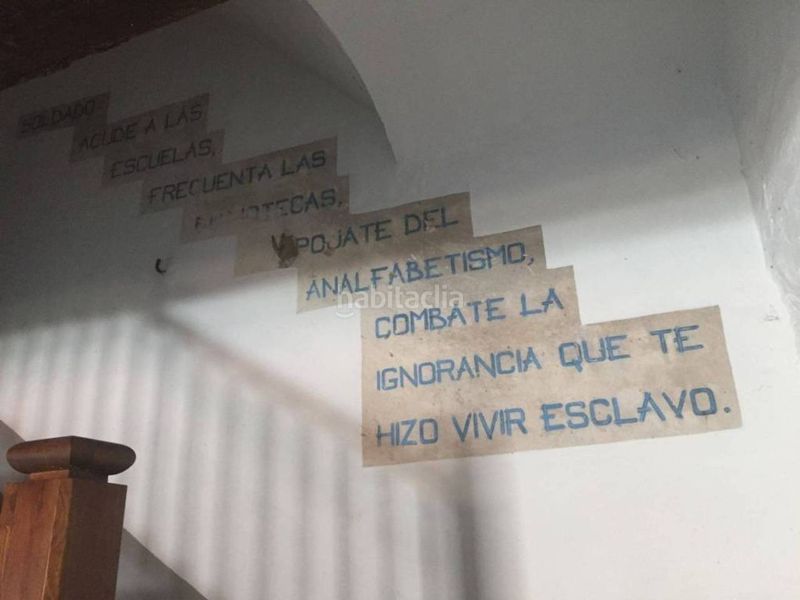 SOLDADO:
ACUDE A LAS
ESCUELAS,
FRECUENTA LAS
POJATE DEL
ANALFABETISMO,
COMBATE LA
IGNORANCIA QUE TE
HIZO VIVIR ESCLAVO.
habitaclia